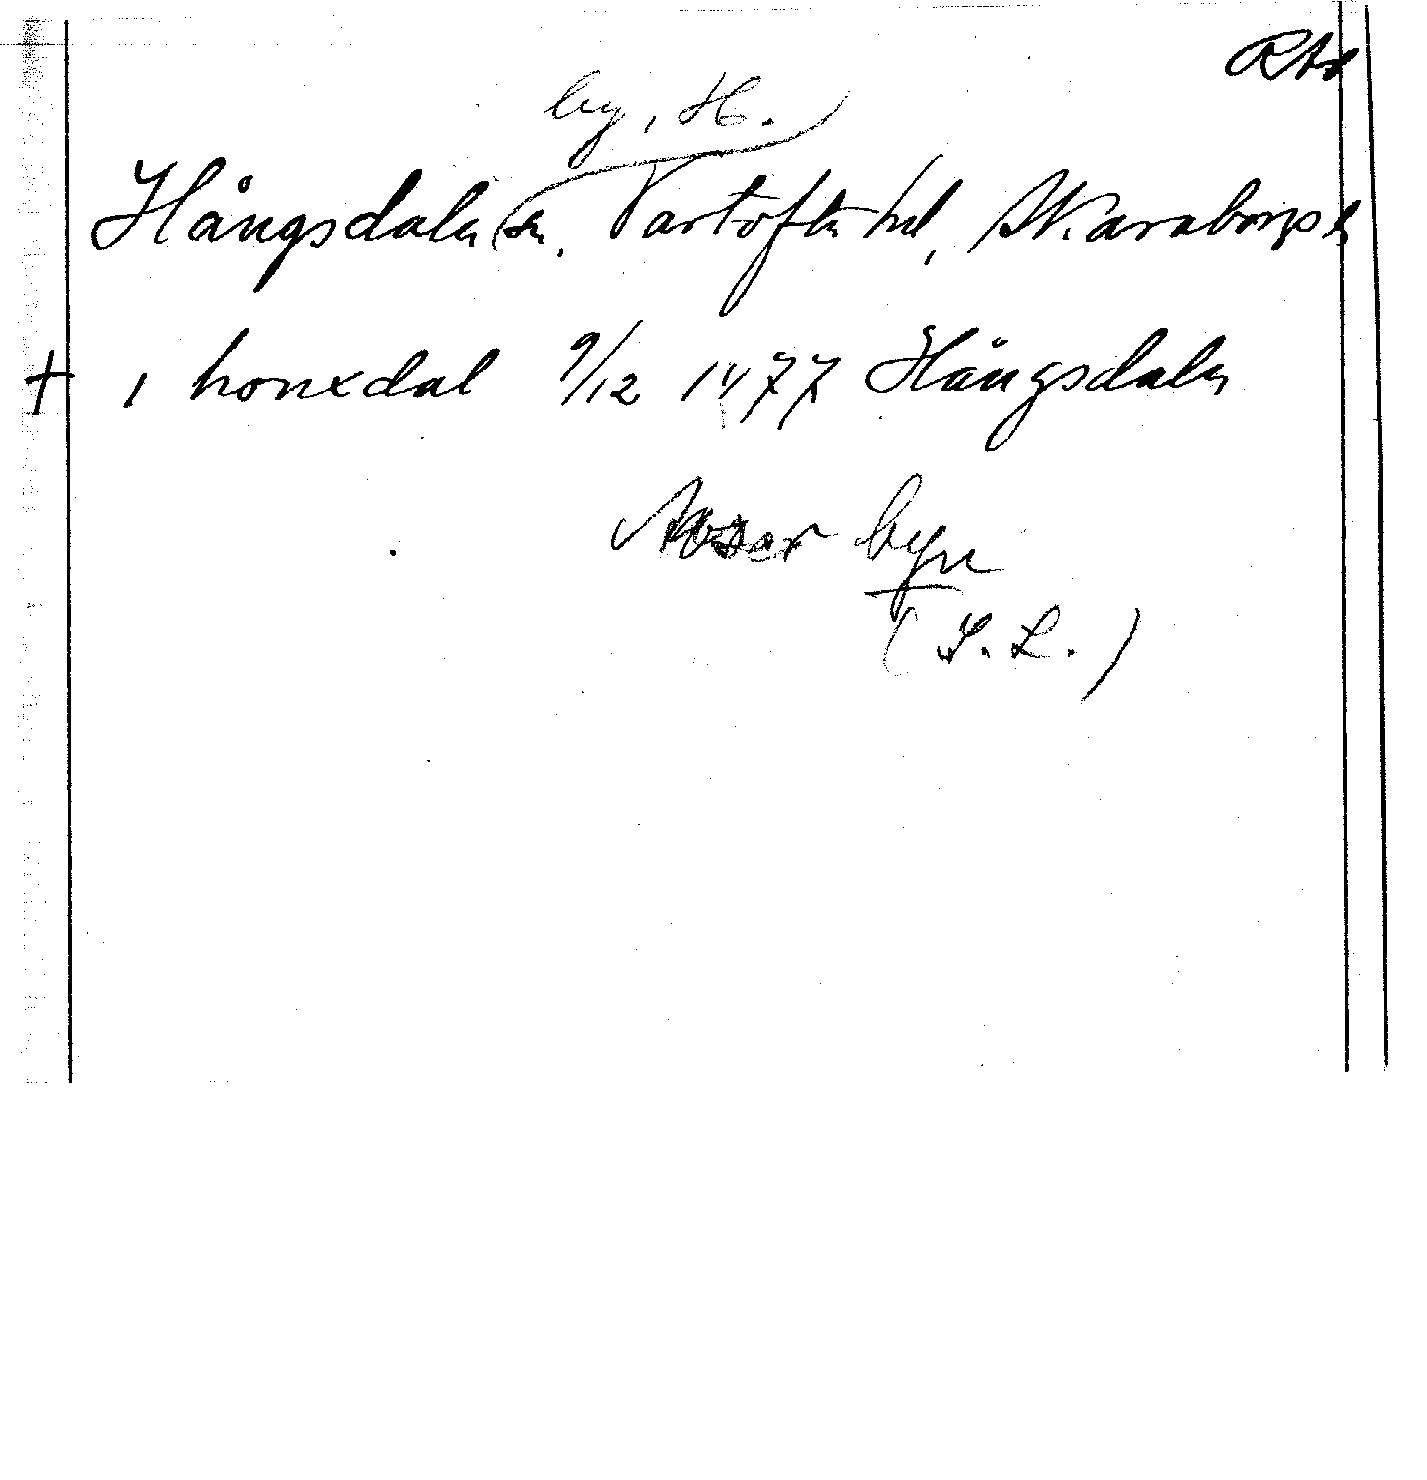 RAp
by, H.
Hångsdala sn. Vartofta hd, Skaraborgs l
† i honxdal 9/12 1477 Hångsdala
Avser byn
(S.L.)